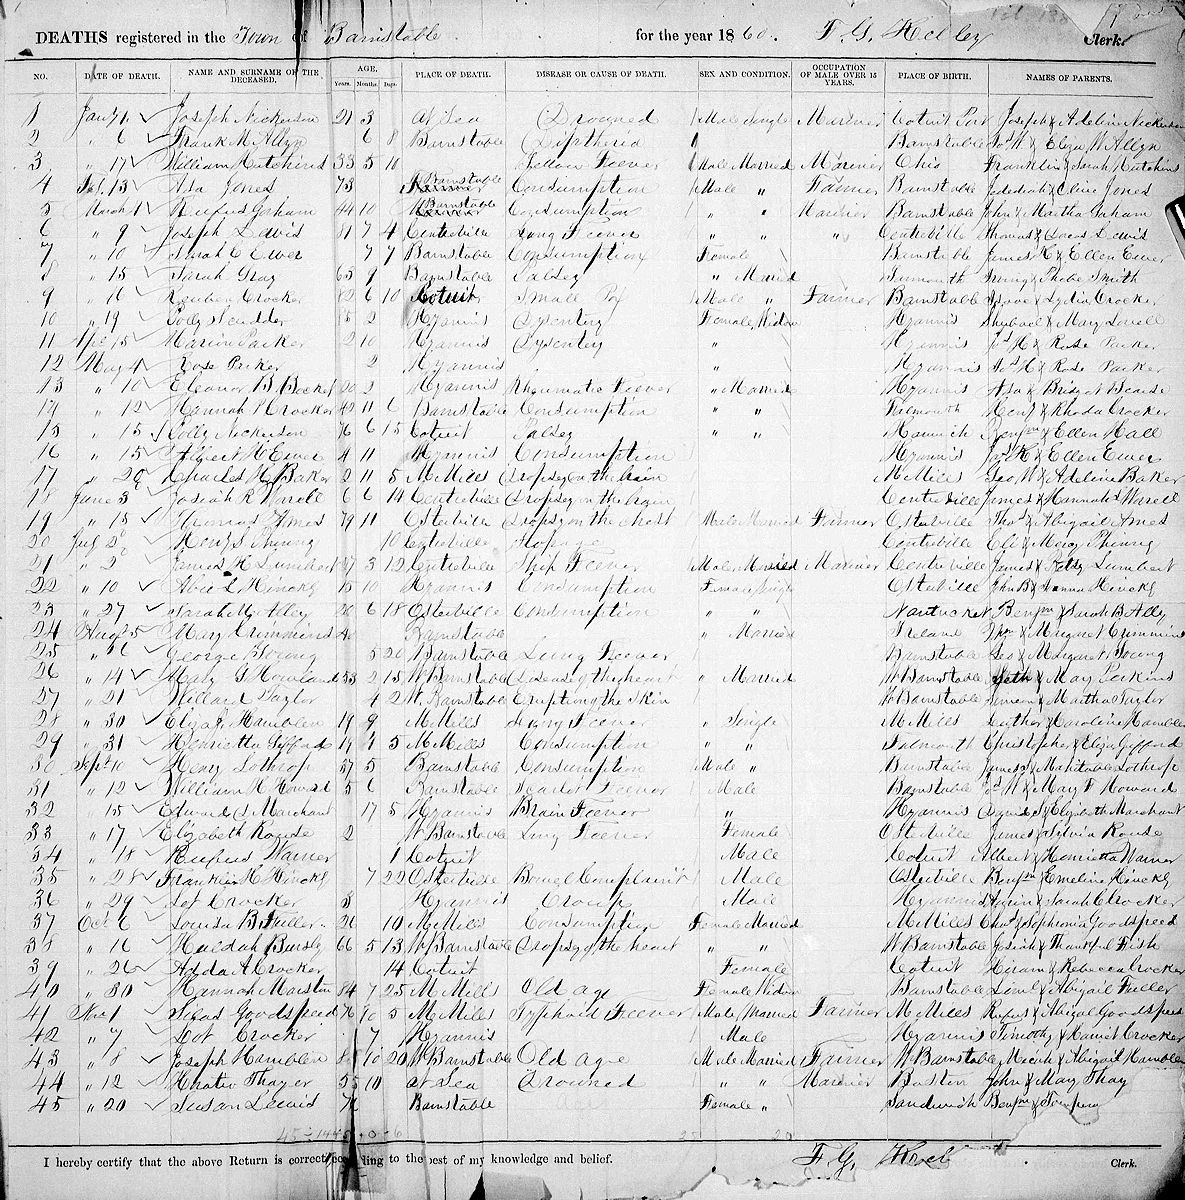 DEATHS registered in the Town of Barnstable for the year 1860. F. G. Kelley Clerk.
NO. DATE OF DEATH. NAME AND SURNAME OF THE DECEASED. AGE. Years. Months. Days. PLACE OF DEATH. DISEASE OR CAUSE OF DEATH. SEX AND CONDITION. OCCUPATION OF MALE OVER 15 YEARS. PLACE OF BIRTH. NAMES OF PARENTS.
1 Jany 1 Joseph Nickerson 21 3 At Sea Drowned Male Single Mariner Cotuit Port Joseph & Adeline Nickerson
2 " 6 Frank M. Allyn 6 8 Barnstable " Barnstable & Eliza Allyn
3 " 17 William Hutchins 33 5 Feever Male Married Mariner Ohio Franklin & Sarah Hutchins
4 Feb. 13 Asa Jones 73 W Barnstable Consumption Male " Farmer Barnstable Jedediah & Jones
5 March 1 Rufus Gorham 44 10 W Barnstable Consumption " " Mariner Barnstable John & Martha Gorham
6 " 9 Joseph Lewis 7 4 Centreville Lung Feever " " " Centreville Thomas & Lewis
7 " 10 Sarah C Ewer 7 7 Barnstable Consumption Female Barnstable James H & Ellen Ewer
8 " 15 Sarah Gray 65 9 Barnstable Palsey " Married & Phebe Smith
9 " 16 Reuben Crocker 82 6 10 Cotuit Small Pox Male " Farmer Barnstable & Lydia Crocker
10 " 19 Polly Scudder 2 Hyannis Dysentery Female, Widow Hyannis Shubael & Mary Lovell
11 Apl 15 Marion Parker 2 10 Hyannis Dysentery " Hyannis Jos H & Rose Parker
12 May 4 Rose Parker 2 Hyannis " Hyannis Jos H & Rose Parker
13 " 10 Eleanor B. 2 Hyannis Rheumatic Feever " Married Hyannis Asa & Bridget Bearse
14 " 12 Hannah P Crocker 11 6 Barnstable Consumption " " Falmouth Henry & Rhoda Crocker
15 " 15 Polly Nickerson 76 6 15 Cotuit Palsey " " Harwich Benjm & Ellen Hall
16 " 15 Albert H Ewer 4 11 Hyannis Consumption Hyannis Jas H & Ellen Ewer
17 " 29 Charles H Baker 2 11 5 M Mills Dropsey on the brain M Mills Geo W & Adeline Baker
18 June 3 Josiah R Worrell 6 6 14 Centreville Dropsey on the brain Centreville James & Hannah Worrell
19 " 15 Thomas Ames 79 11 Osterville Dropsy on the chest Male Married Farmer Osterville Thos & Abigail Ames
20 July 2 Henry S Phinney 10 Centreville Centreville Eli & Mercy Phinney
21 " 2 James H Lumbert 37 3 12 Centreville Ship Feever Male Married Mariner Centreville James & Betsy Lumbert
22 " 10 Abbie L Hinckly 15 10 Hyannis Consumption Female, Single Osterville John B & Hinckly
23 " 27 Sarah M Alley 26 6 18 Osterville Consumption " " Nantucket Benjm & Sarah B Ally
24 Augt 5 Mary Crimmins 40 Barnstable " Married Ireland & Margaret Crimmins
25 " 6 George B Young 5 20 W Barnstable Lung Feever Barnstable Geo & Margaret Young
26 " 14 Mary G Howland 33 2 15 W Barnstable Disease of the heart " Married W Barnstable Seth & Mary Perkins
27 " 21 Willard Taylor 4 2 W. Barnstable Eruption of the Skin W Barnstable Simeon & Martha Taylor
28 " 30 Eliza Hamblen 19 9 M Mills Lung Feever " Single M Mills Luther & Caroline Hamblen
29 " 31 Henrietta Gifford 19 4 5 M Mills Consumption " " Falmouth Christopher & Eliza Gifford
30 Sept 10 Henry Lothrop 37 5 Barnstable Consumption Male " Barnstable James & Mahitable Lothrop
31 " 12 William H Howard 5 6 Barnstable Scarlet Feever Male Barnstable W & Mary F Howard
32 " 15 Edward S Marchant 17 5 Hyannis Brain Feever " Hyannis & Elizabeth Marchant
33 " 17 Elizabeth Rouse 2 W Barnstable Lung Feever Female Osterville James & Sylvia Rouse
34 " 18 Rufus Warner 1 Cotuit Male Cotuit Albert & Henrietta Warner
35 " 28 Franklin H Hinckly 7 22 Osterville Bowel Complaint Male Osterville Benjm & Emeline Hinckly
36 " 29 Lot Crocker 3 Hyannis Croup Male Hyannis & Sarah Crocker
37 Oct 6 Louisa B Fuller 26 10 M Mills Consumption Female Married M Mills Chas & Sophronia Goodspeed
38 " 16 Huldah Bursly 66 5 13 W Barnstable Dropsy of the heart " " W Barnstable Josiah & Thankful Fish
39 " 26 Adda A Crocker 14 Cotuit Female Cotuit Hiram & Rebecca Crocker
40 " 30 Hannah Marston 84 7 25 M Mills Old age Female Widow Barnstable Leml & Abigail Fuller
41 Nov 1 Silas Goodspeed 76 10 5 M Mills Typhoid Feever Male, Married Farmer M Mills Rufus & Abigal Goodspeed
42 " 7 Lot Crocker 7 Hyannis Male Hyannis Timothy & Harriet Crocker
43 " 8 Joseph Hamblen 85 10 20 W Barnstable Old Age Male Married Farmer W Barnstable Micah & Abigail Hamblen
44 " 12 Horatio Thayer 55 10 at Sea Drowned " " Mariner Boston John & Mary Thay
45 " 20 Susan Lewis Barnstable Female " Sandwich Benjm &
I hereby certify that the above Return is correct according to the best of my knowledge and belief. F. G. Clerk.